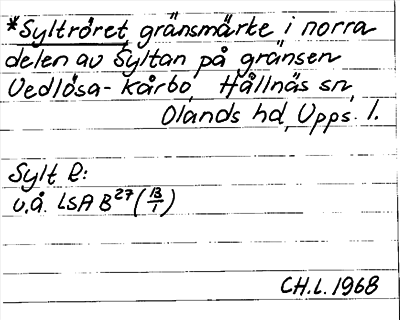 *Syltröret gränsmärke i norra
delen av Syltan på gränsen
Vedlösa-Kårbo, Hållnäs sn,
Olands hd, Upps. l.
Sylt R:
u.å. LSA B27 (13/1)
CH.L. 1968